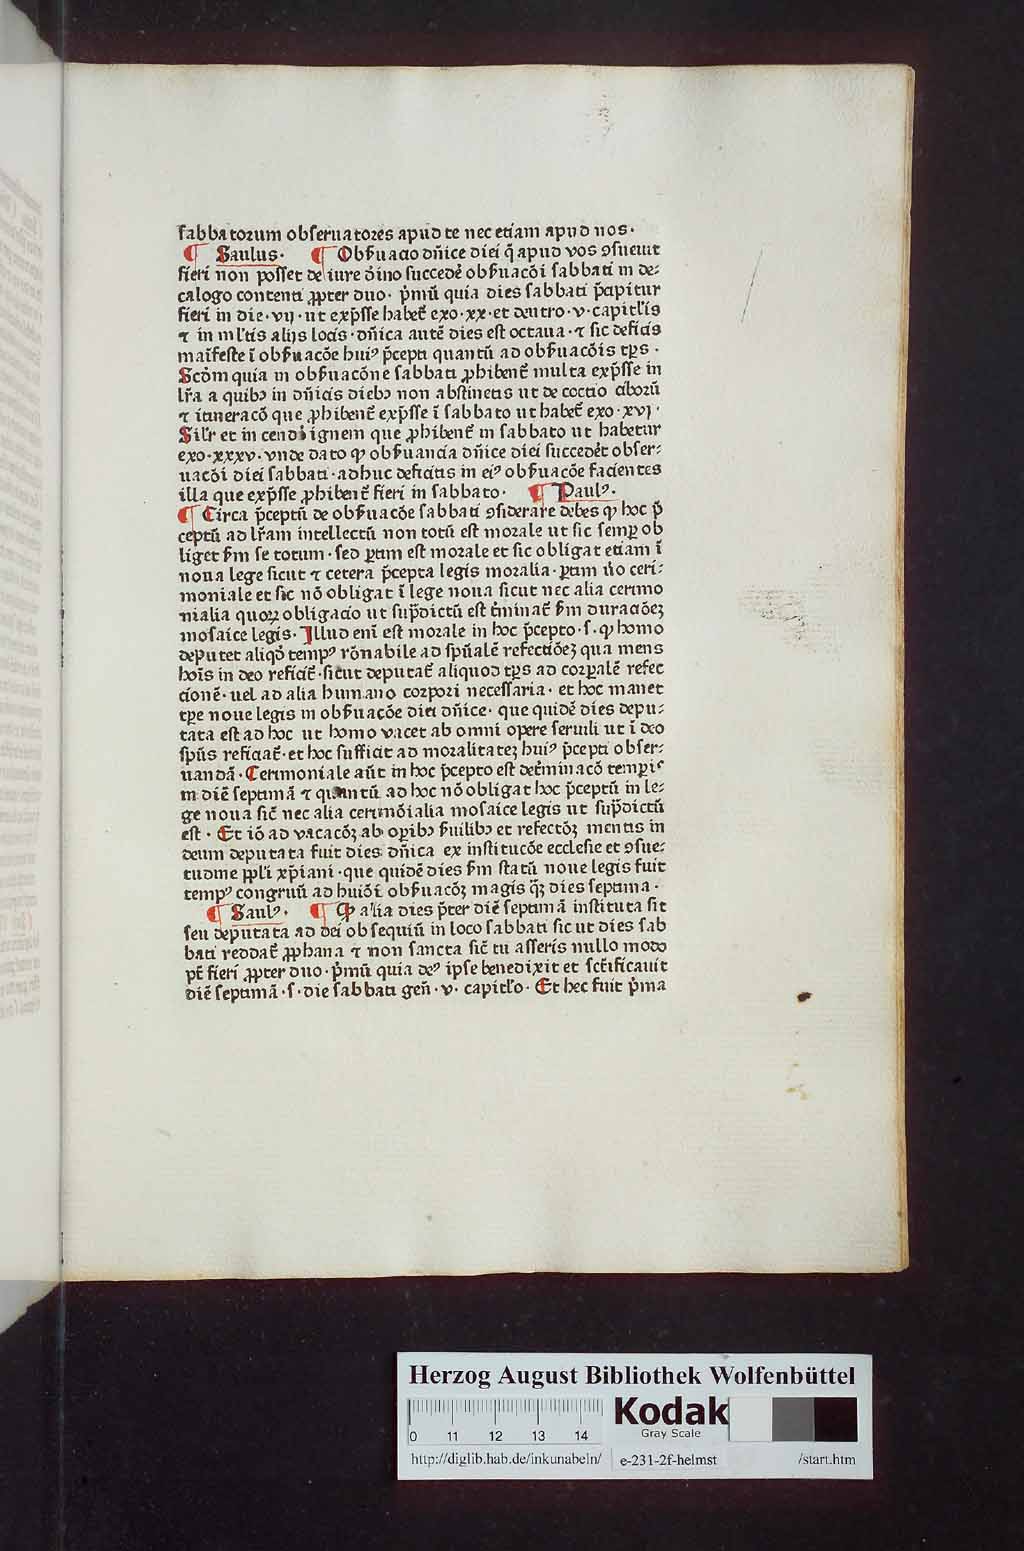 sabbatorum obseruatores apud te nec etiam apud nos·
¶ Saulus· ¶ Obſuacio dñice diei q̄ apud vos ɔſueuit
fieri non posset de iure õino succedeꝛ̃ obſuacõi sabbati in de⸗
calogo contenti ꝓpter duo· p̃mũ quia dies sabbati p̃cipitur
fieri in die·vij·ut exp̃sse habet̃ exo·xx·et deutro·v·capitl̃is
⁊ in ml̃tis alijs locis·dñica autẽ dies est octaua·⁊ sic deficis
maĩfeste ĩ obſuacõe huiꝰ p̃cepti quantũ ad obſuacõis tp̃s·
Scðm quia in obſuacõne sabbati ꝓhibent̃ multa exp̃sse in
lr̃a a quibꝫ in dñicis diebꝫ non abstinetis ut de coctio ciborũ
⁊ itineracõ que ꝓhibent̃ exp̃sse ĩ sabbato ut habet̃ exo·xvj·
Sil̃r et incendi ignem que ꝓhibent̃ in sabbato ut habetur
exo·xxxv·vnde dato ꝙ obſuancia dñice diei succedet̃ obser⸗
uacõi diei sabbati·adhuc deficitis in eiꝰ obſuacõe facientes
illa que exp̃sse ꝓhibent̃ fieri in sabbato· ¶ Paulꝰ·
¶ Circa p̃ceptũ de obſuacõe sabbati ɔsiderare debes ꝙ hoc p̃
ceptũ ad lr̃am intellectũ non totũ est morale ut sic semꝑ ob
liget ſm se totum·sed ꝑtim est morale et sic obligat etiam ĩ
noua lege sicut ⁊ cetera p̃cepta legis moralia·ꝑtim ũo ceri⸗
moniale et sic nõ obligat ĩ lege noua sicut nec alia cerimo
nialia quoꝝ obligacio ut sup̃dictũ est t̃minat̃ ſm duraciõeꝫ
mosaice legis·Illud eni᷑ est morale in hoc p̃cepto·s·ꝙ homo
deputet aliqð tempꝰ rõnabile ad sp̃ualẽ refectiõeꝫ qua mens
hoĩs in deo reficit̃·sicut deputat̃ aliquod tp̃s ad corꝑalẽ refec
cionẽ·uel ad alia humano corpori necessaria·et hoc manet
tꝑe noue legis in obſuacõe diei dñice·que quidẽ dies depu⸗
tata est ad hoc ut homo vacet ab omni opere seruili ut ĩ deo
sp̃us reficiat̃·et hoc sufficit ad moralitateꝫ huiꝰ p̃cepti obser⸗
uandã·Cerimoniale aũt in hoc p̃cepto est det̃minacõ temporis
in diẽ septimã ⁊ quantũ ad hoc nõ obligat hoc p̃ceptũ in le⸗
ge noua sic̃ nec alia cerimõialia mosaice legis ut sup̃dictũ
est·Et iõ ad vacacõꝫ ab oꝑibꝫ ſuilibꝫ et refectõꝫ mentis in
deum deputata fuit dies dñica ex institucõe ecclesie et ɔsue⸗
tudine ppl̃i xp̃iani·que quidẽ dies ſm statũ noue legis fuit
tempꝰ congruũ ad huiõi obſuacõꝫ magis q̃ꝫ dies septima·
¶ Saulꝰ· ¶ Ꝙ alia dies p̃ter diẽ septimã instituta sit
seu deputata ad dei obsequiũ in loco sabbati sic ut dies sab
bati reddat̃ ꝓphana ⁊ non sancta sic̃ tu asseris nullo modo
pt̃ fieri ꝓpter duo·p̃mũ quia deꝰ ipse benedixit et sc̃tificauit
diẽ septimã·s·die sabbati geñ·v·capitl̃o·Et hec fuit p̃ma
Herzog August Bibliothek Wolfenbüttel
0 11 12 13 14
Kodak
Gray Scale
http://diglib.hab.de/inkunabeln/ e-231-2f-helmst /start.htm